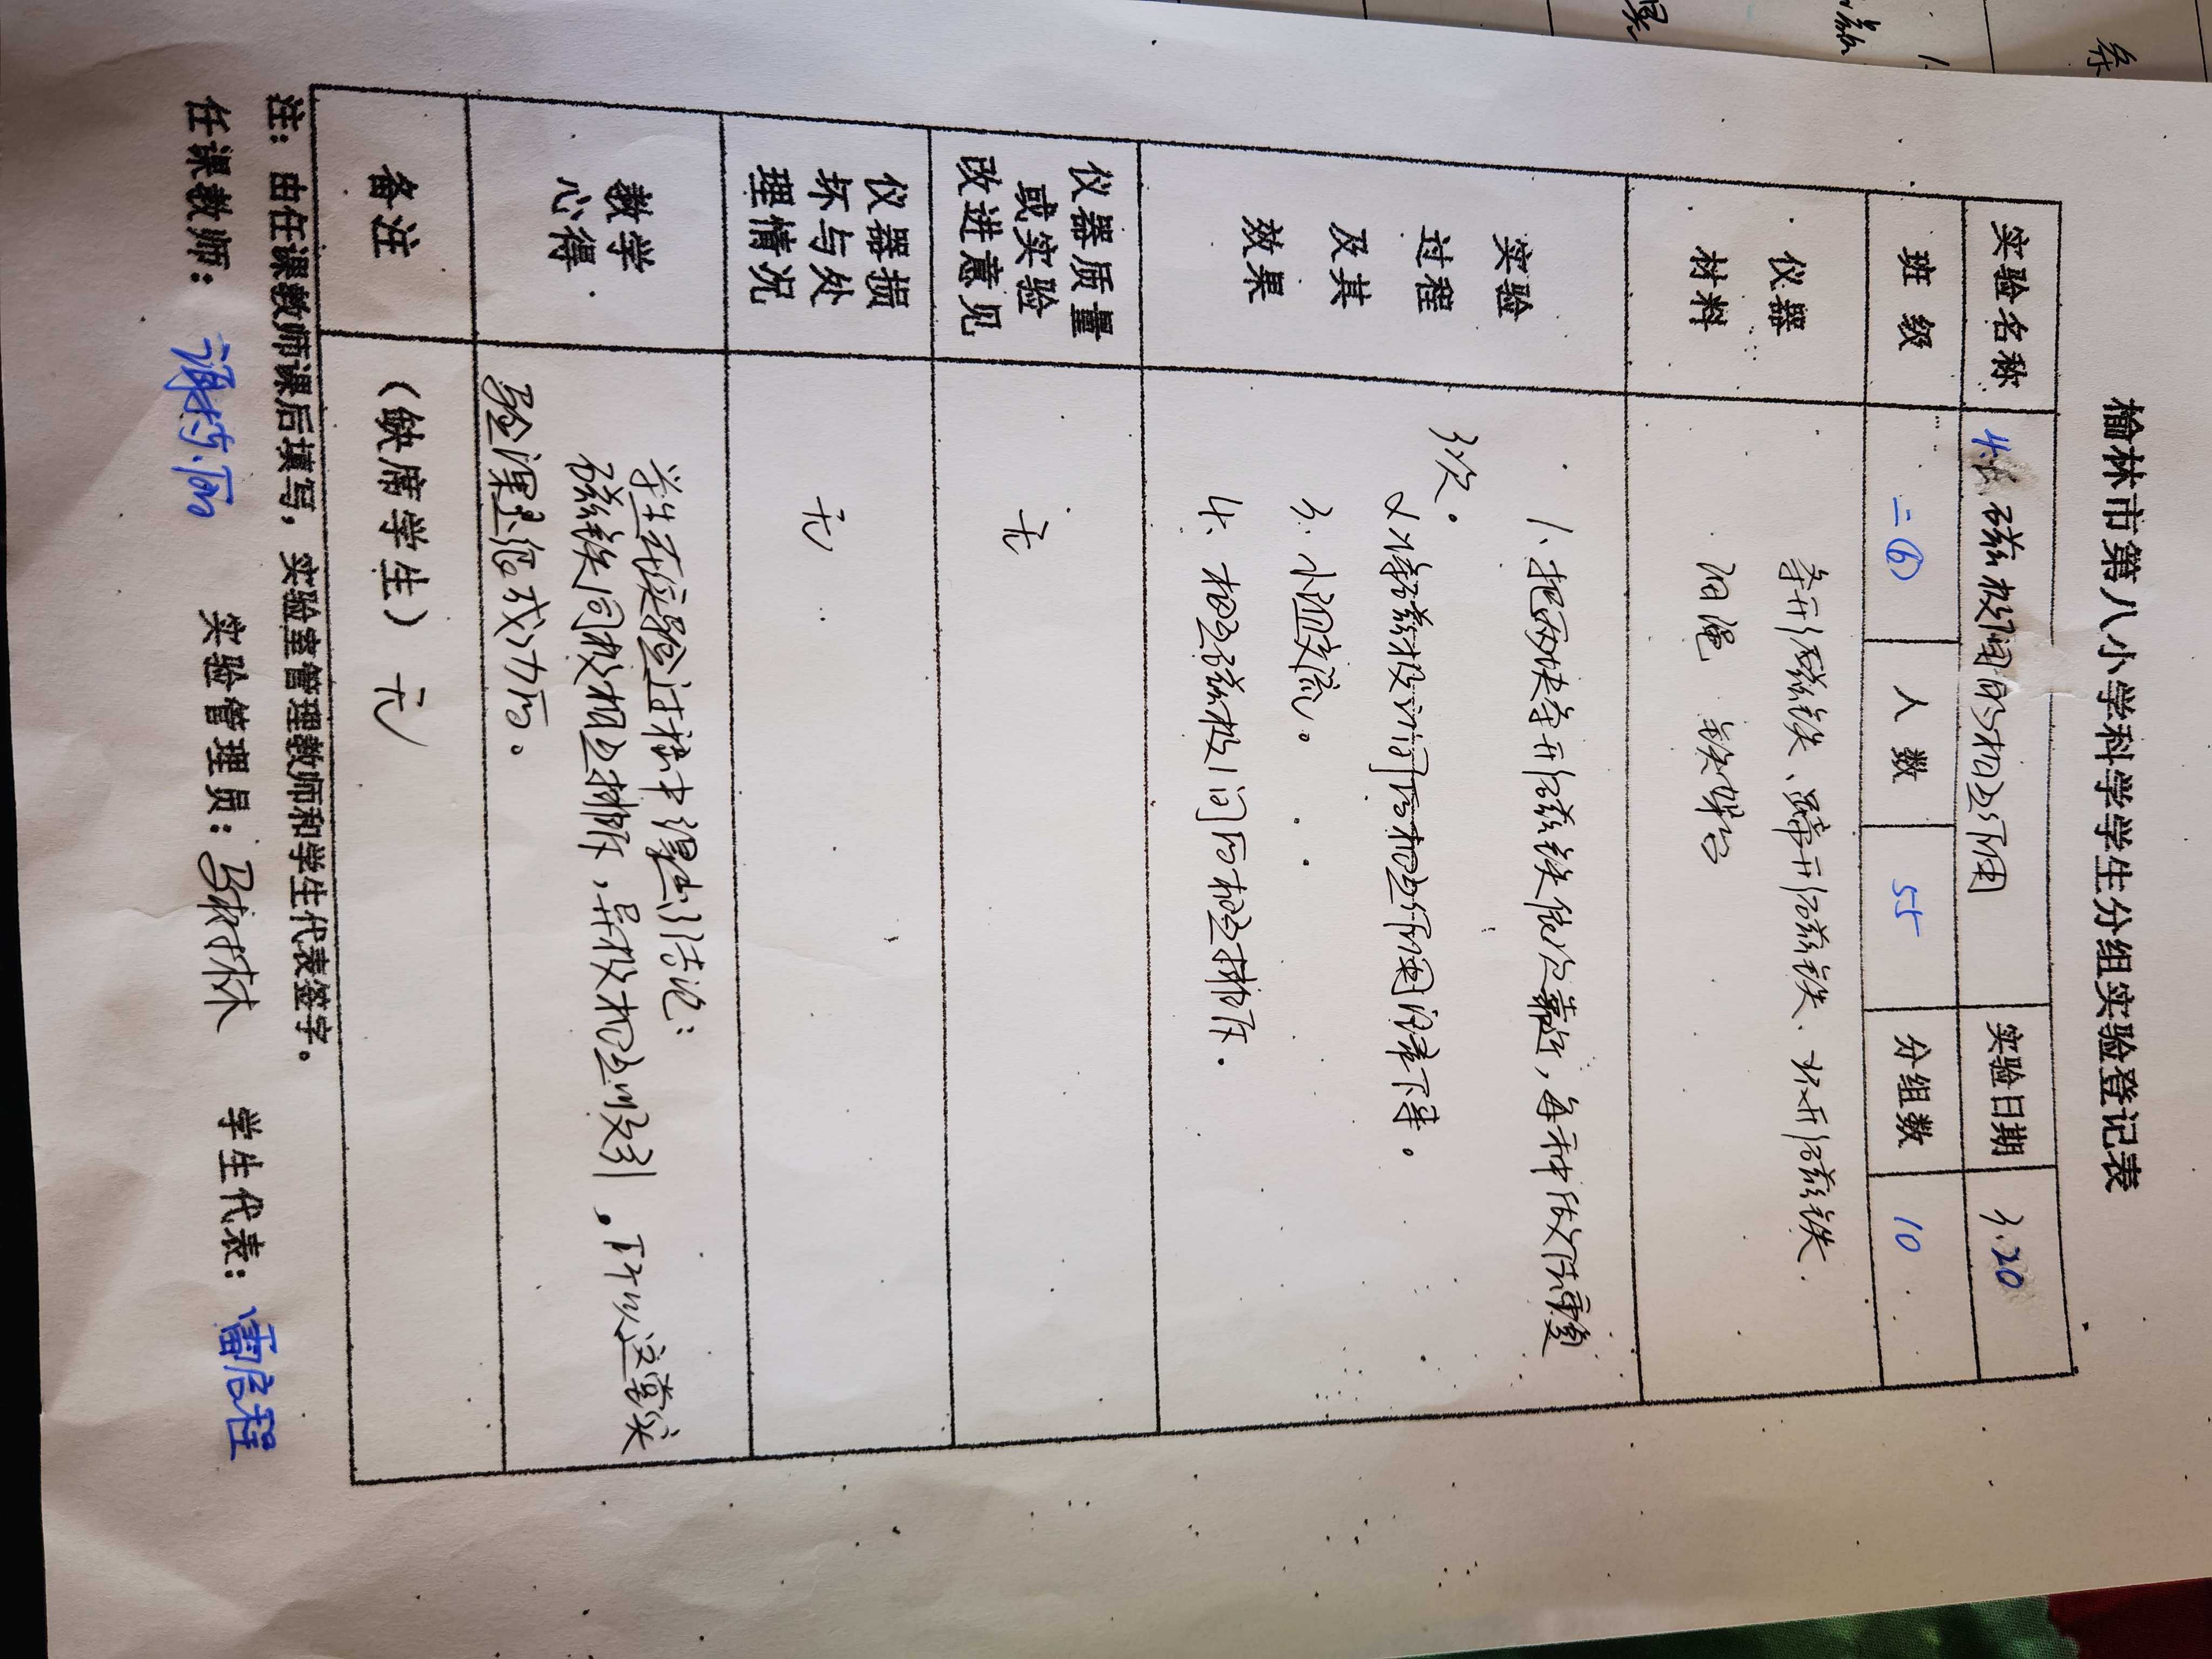 榆林市第八小学科学学生分组实验登记表
实验名称 4. 磁极间的相互作用 实验日期 3.20
班级 二(6) 人数 55 分组数 10
仪器材料 条形磁铁、蹄形磁铁、环形磁铁.
细绳 铁架台
实验过程及其效果 1、把两块条形磁铁彼此靠近，每种做法重复
3次。
2、将磁极之间的相互作用记录下来。
3. 小组交流。
4、相互磁极之间的相互排斥.
仪器质量或实验改进意见 无
仪器损坏与处理情况 无
教学心得 学生在实验过程中得出了结论：
磁铁同极相互排斥，异极相互吸引。所以这堂实
验课是很成功的。
备注 （缺席学生） 无
注：由任课教师课后填写，实验室管理教师和学生代表签字。
任课教师： 实验管理员： 学生代表：